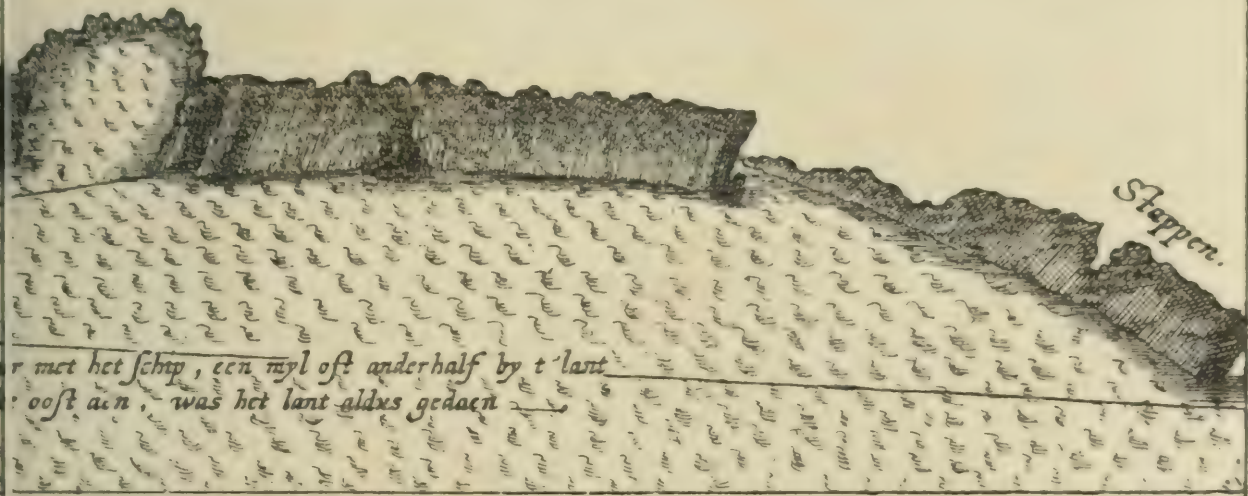 Stappen.
r met het schip, een myl oft anderhalf by t'lant
oost aen, was het lant aldus gedaen